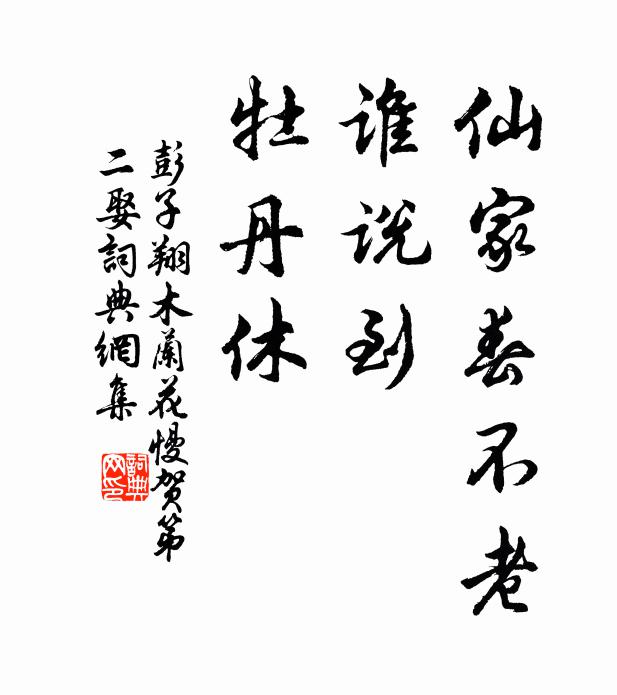 仙家春不老
谁说到
牡丹休
彭子翔木蘭花慢贺第
二娶詞典網集
詞典
网印